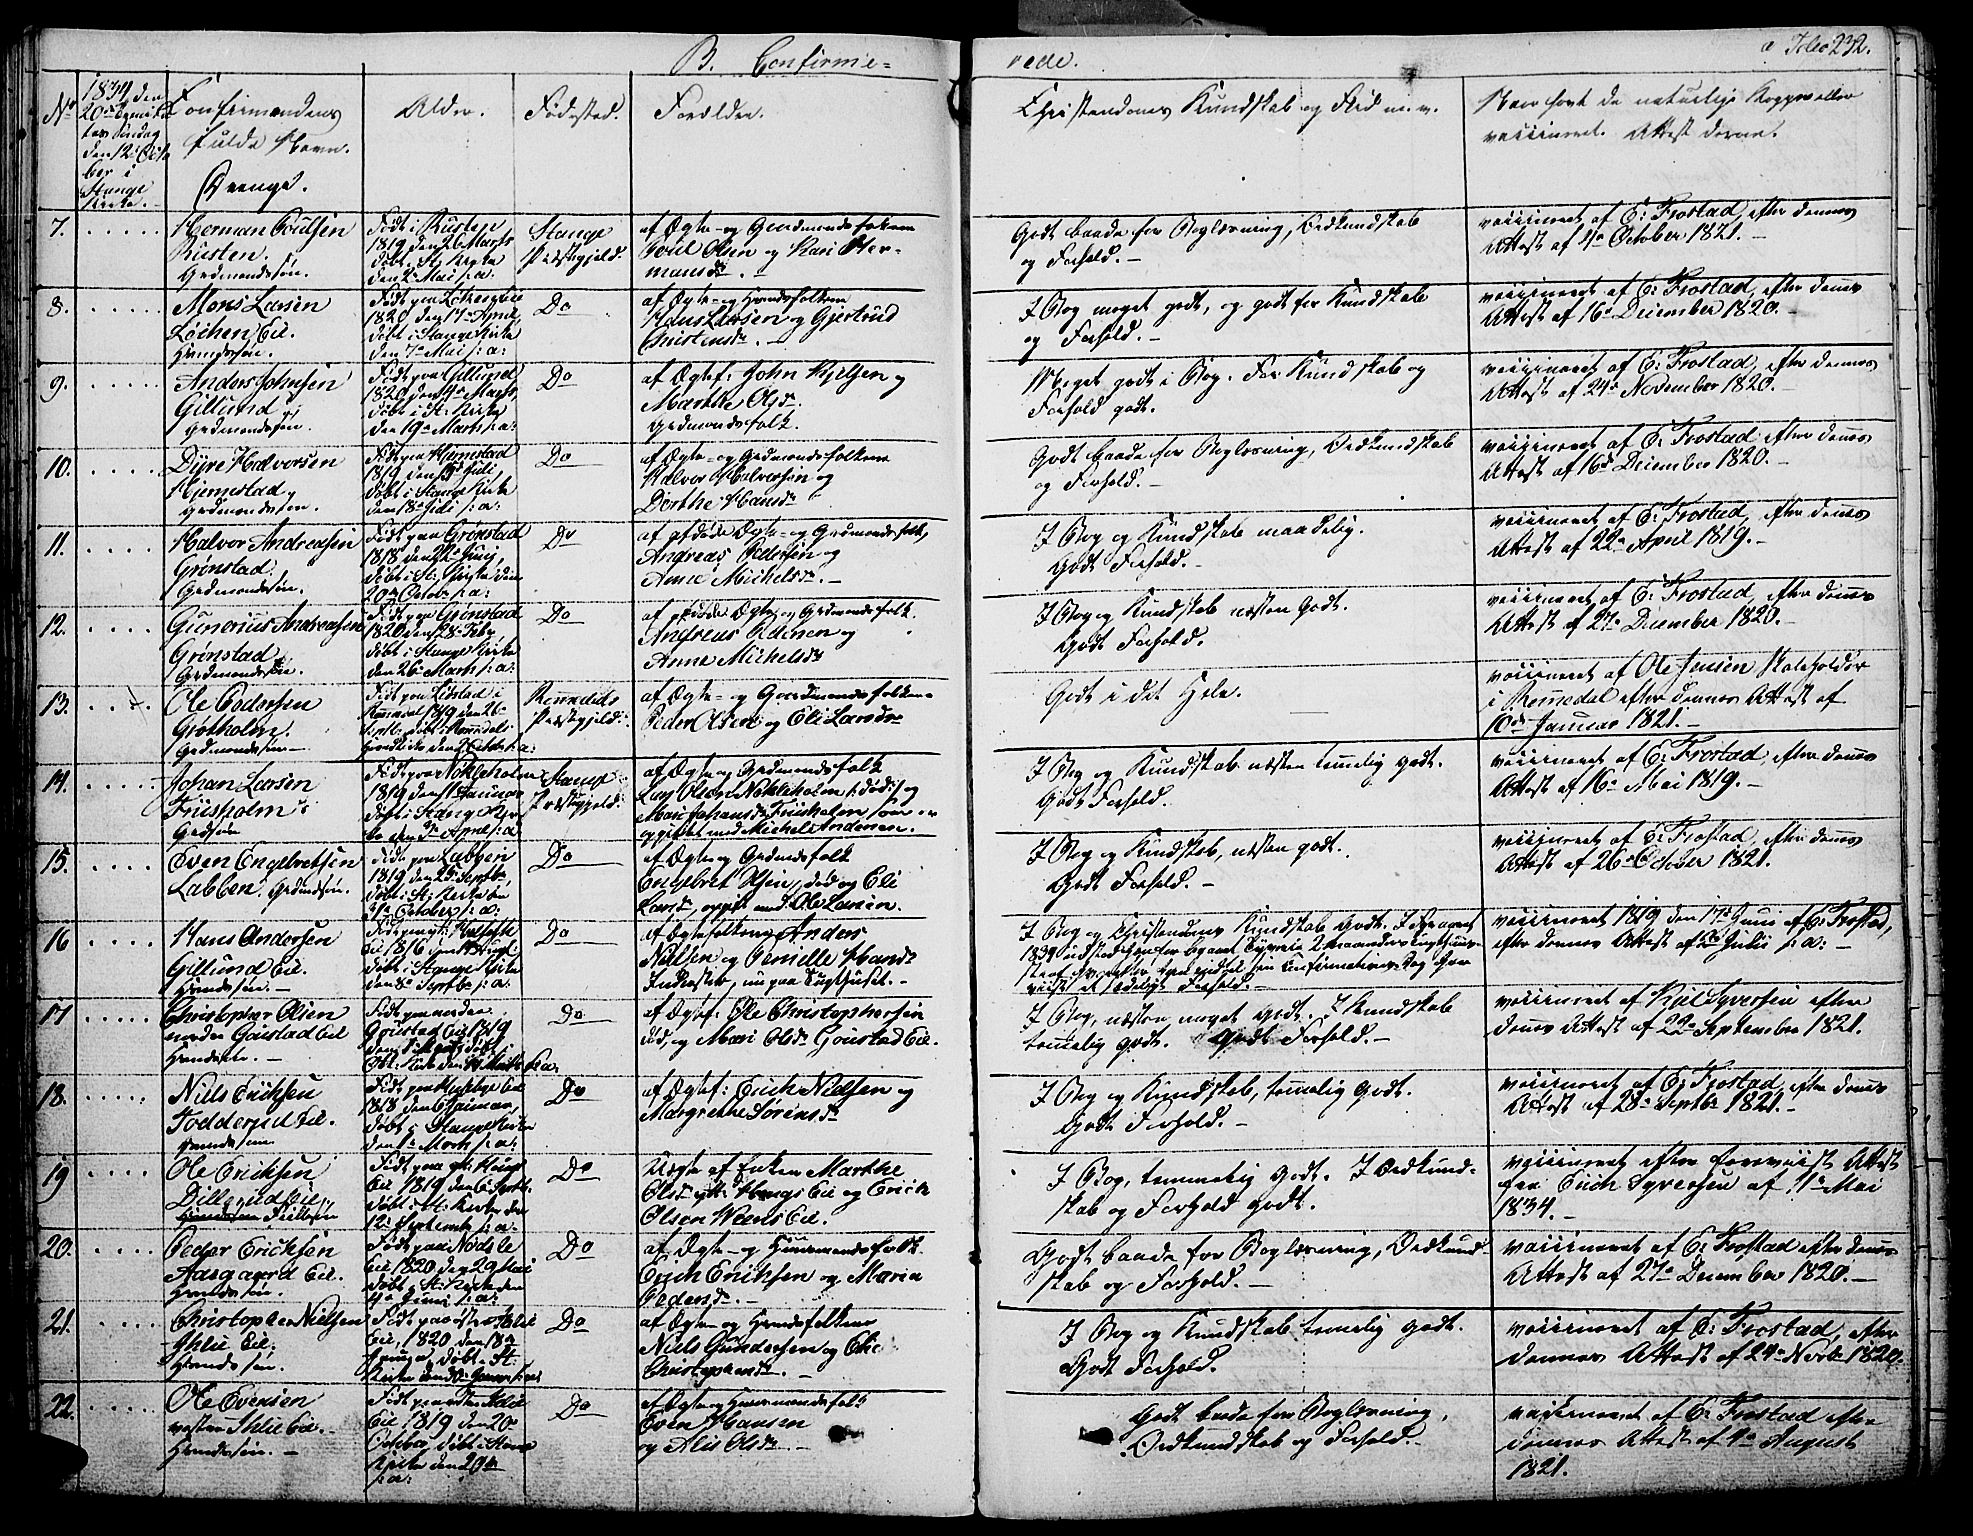 B. Confirme-
rede.
Folio 232.
No
1834 den
20de
Søndag
den 12 Octo
ber i
Stange
Kirke.
Confirmandens
fulde Navn.
Drenge.
Alder.
Fødested.
Forældre.
Christendoms Kundskab og Flid m. v.
Naar havt de naturlige Kopper eller
vaccineret. Attest derom.
7.
Herman Poulsen
Rusten.
Grdmandssøn.
Født i Rusten
1819 den 26 Marts
døbt i St. Kirke
den 2 Mai s: a:
Stange
Præstgjeld.
af Ægte- og Gaardmandsfolkene
Poul Olsen og Kari Her-
mansdr. -
Godt baade for Boglæsning, Ordkundskab
og Forhold. -
vaccineret af E: Frostad, efter dennes
Attest af 4de October 1821. -
8.
Mons Larsen
Løchen Eie.
Huusmdssøn.
1820 den 17de April
døbt i Stange Kirke
den 7de Mai s: a:
Do
af Ægte- og Huusmdsfolkene
Hans Larsen og Gjertrud
Christensdr. -
I Bog meget godt, og godt for Kundskab
og Forhold. -
vaccineret af E: Frostad, efter dennes
Attest af 16de December 1820. -
9.
Anders Johnsen
Gillund
Grdmandssøn.
Født paa Gillund
1820 den 4de Marts,
døbt i St: Kirke
den 19de Marts s: a:
Do
af Ægtef: John Kjelsen og
Marthe Olsdr.
Grdmandsfolk.
Meget godt i Bog. For Kundskab og
Forhold godt.
vaccineret af E: Frostad, efter dennes
Attest af 24de November 1820. -
10.
Dyre Halvorsen
Hjemstad,
Grdmandssøn.
Født paa Hjemstad
1819 den Juli,
døbt i Stange Kirke
den 18de Juli s: a:
Do
af Ægte- og Grdmandsfolkene
Halvor Halvorsen og
Dorthe Hansdr
Godt baade for Boglæsning, Ordkundskab
og Forhold. -
vaccineret af E: Frostad efter dennes
Attest af 16de December 1820. -
11.
Halvor Andreasen
Grønstad.
Grdmandssøn.
Født paa Grønstad
1818 den Juny,
døbt i St: Kirke den
20de Octobr s: a:
Do
af afdøde Ægte- og Grdmandsfolk,
Andreas Pedersen og
Anne Michelsdr. -
I Bog og Kundskab maadelig.
Godt Forhold. -
vaccineret af E: Frostad, efter dennes
Attest af 22de April 1819. -
12.
Gunerius Andreasen
Grønstad
Grdmandssøn.
Født paa Grønstad
1820 den 28de Feby,
døbt i Stange Kirke
den 26de Marts s: a:
Do
af afdøde Ægte- og Grdmandsfolk.
Andreas Pedersen og
Anne Michelsdr
I Bog og Kundskab næsten godt.
Godt Forhold.
vaccineret af E: Frostad, efter dennes
Attest af 27de December 1820. -
13.
Ole Pedersen
Grøtholm.
Grdmandssøn -
Født paa Lidstad i
Romedal 1819 den 26de
Romedals
Præstgjeld.
af Ægte- og Gaardmandsfolkene
Peder Olsen og Eli Larsdr
Godt i det Hele.
vaccineret af Ole Jensen Skoleholder
i Romedal efter dennes Attest af
10de Januar 1821. -
14.
Johan Larsen
Friisholm
Grdssøn
Født paa Nøkleholm
1819 den Januar
døbt i Stange Kir-
ke den April s: a:
Stange
Præstgjeld.
af Ægte og Grdmandsfolk
Lars Olsen Nøkleholm (: død :) og
Mari Johansdr Friisholm som er
opgiftet med Michel Andersen.
I Bog og Kundskab næsten temmelig godt.
Godt Forhold.
vaccineret af E: Frostad, efter dennes
Attest af 16de Mai 1819. -
15.
Even Engebretsen
Labben. Grdmdssøn.
Født paa Labben
1819 den Septbr,
døbt i St: Kirke den
October s: a:
Do
af Ægte og Grdmdsfolk
Engebret Olsen, død og Eli
Larsdr, opgift med Ole Larsen.
I Bog og Kundskab, næsten godt.
Godt Forhold. -
vaccineret af E: Frostad, efter dennes
Attest af 26de October 1821.
16
Hans Andersen
Gillund Eie.
Huusmdssøn. -
Eie 1816 den Augt.
døbt i Stange Kirke
den 8de Septbr s: a:
Do
af Ægtefolkene Anders
Nielsen og Pernille Hansdr
Inderster, nu paa Tugthuset. -
I Bog og Christendoms Kundskab Godt.
vaccineret 1819 den 17de Juni af E: Frostad,
efter dennes Attest af Julii s: a: -
17
Christopher Olsen
nedre Goustad Eie
Huusmdssøn. -
Født paa nedre
Goustad Eie 1819
Do
af Ægtef: Ole Christophersen
død, og Mari Olsdr Goustad Eie.
I Bog, næsten meget godt. I Kundskab
temmelig godt. Godt Forhold. -
vaccineret af Kiel Syversen efter
dennes Attest af 22de September 1821.
18.
Niels Eriksen
Fodderud Eie.
Huusmdssøn.
1818 den Januar,
døbt i Stange Kirke
den 1de Marts s: a:
Do
af Ægtef: Erich Nielsen og
Margrethe Sørensdr
I Bog og Kundskab, temmelig godt.
Godt Forhold. -
vaccineret af E: Frostad, efter dennes
Attest af 28de Septbr 1821. -
19
Ole Eriksen
Dillerud Eie,
Eie 1819 den 6te Septr.
døbt i St: Kirke den
12te Septemb. s: a:
Do
Uægte af Enken Marthe
Olsdr og Erich
Olsen Weens Eie.
I Bog, temmelig godt. I Ordkund-
skab og Forhold godt.
vaccineret efter foreviist Attest
fra Erich Syversen af 11te Mai
1834. -
20.
Peder Ericksen
Aasgaard Eie.
Huusmdssøn.
Født paa Nødsle
Eie 1820 den 29 Mai
døbt i St: Kirke den
Juni s: a:
Do
af Ægte- og Huusmandsfolk.
Erich Eriksen og Maria
Pedersdr. -
Godt baade for Boglæsning, Ordkund-
skab og Forhold. -
vaccineret af E: Frostad efter dennes
Attest af 27de December 1820. -
21.
Christopher Nielsen
Ihlie Eie.
Huusmdssøn.
Eie, 1820 den 18de
Januar, døbt i St:
Do
af Ægte- og Huusmdsfolkene
Niels Gundersen og Elie
Christophersdr. -
I Bog og Kundskab temmelig godt.
Godt Forhold.
vaccineret af E: Frostad, efter
dennes Attest af 24de Novbr 1820.
22.
Ole Evensen
vestre Ihlie Eie.
Huusmdssøn. -
Eie 1819 den 20de
October, døbt i Stange
Kirke den
s: a:
Do
af Ægte og Huusmandsfolk
Even Hansen
og Alis Olsdr -
Godt baade for Boglæsning,
Ordkundskab og Forhold. -
vaccineret af E: Frostad efter
dennes Attest af 4de August
1821.